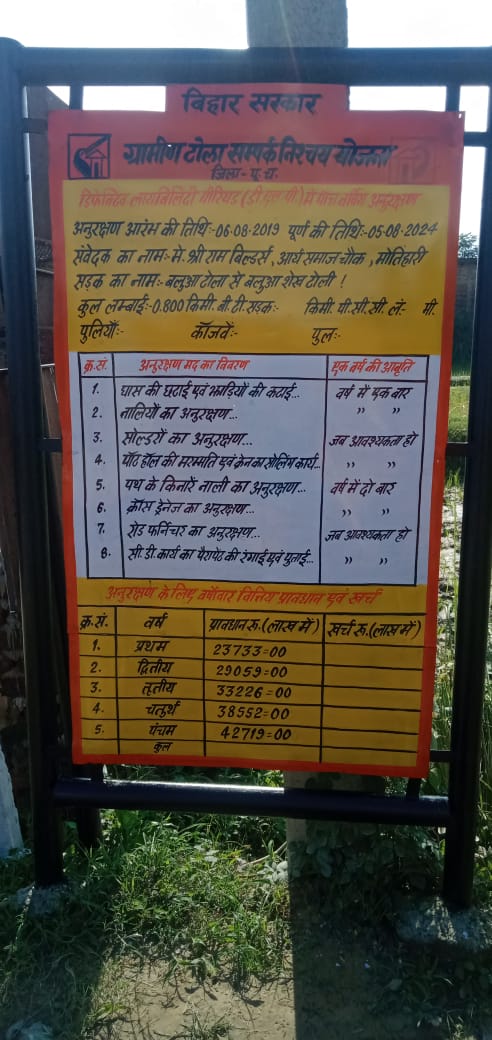 बिहार सरकार
ग्रामीण टोला सम्पर्क निश्चय योजना
जिला-पू.च.
डिफेक्टिव लायबिलिटी पीरियड (डी.एल.पी.) में पांच वर्षीय अनुरक्षण
अनुरक्षण आरंभ की तिथि:-06-08-2019 पूर्ण की तिथि:-05-08-2024
संवेदक का नाम:-मे. श्री राम बिल्डर्स, आर्य समाज चौक, मोतिहारी
सड़क का नाम:-बलुआ टोला से बलुआ शेख टोली !
कुल लम्बाई:-0.800 किमी. बी.टी. सड़क:- किमी. पी.सी.सी. लं:- मी.
पुलियाँ:- कॉजवे:- पुल:-
क्र.सं. अनुरक्षण मद का विवरण एक वर्ष की आवृति
1. घास की छटाई एवं झाड़ियों की कटाई... वर्ष में एक बार
2. नालियों का अनुरक्षण... ,, ,,
3. सोल्डरों का अनुरक्षण... जब आवश्यकता हो
4. पॉट हॉल की मरम्मति एवं क्रेन का सोलिंग कार्य... ,, ,,
5. पथ के किनारें नाली का अनुरक्षण... वर्ष में दो बार
6. क्रॉस ड्रेनेज का अनुरक्षण... ,, ,,
7. रोड फर्निचर का अनुरक्षण... जब आवश्यकता हो
8. सी.डी. कार्य का पैरापेट की रंगाई एवं पुताई... ,, ,,
अनुरक्षण के लिए वर्षवार वित्तिय प्रावधान एवं खर्च
क्र.सं. वर्ष प्रावधान रु.(लाख में) खर्च रु.(लाख में)
1. प्रथम 23733=00
2. द्वितीय 29059=00
3. तृतीय 33226=00
4. चतुर्थ 38552=00
5. पंचम 42719=00
कुल